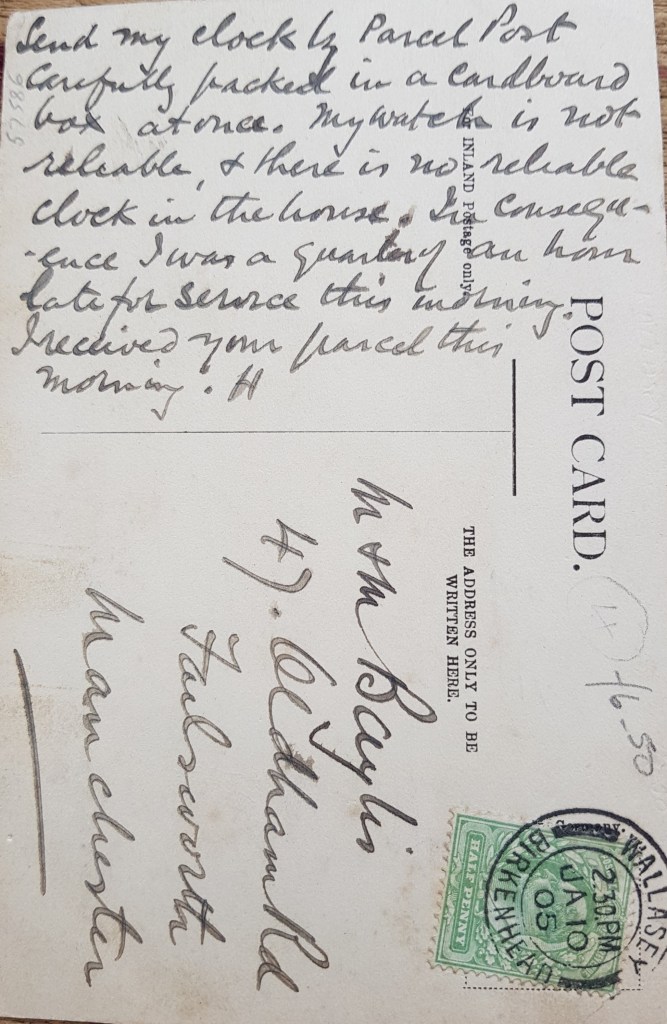 Send my clock by Parcel Post
Carefully packed in a cardboard
box at once. My watch is not
reliable, & there is no reliable
clock in the house. In consequ-
-ence I was a quarter of an hour
late for Service this morning.
I received your parcel this
morning. H
For INLAND Postage only.
POST CARD.
THE ADDRESS ONLY TO BE
WRITTEN HERE.
M & M Baylis
47. Oldham Rd
Failsworth
Manchester
6-50
HALF PENNY
WALLASEY
2.30 PM
JA 10
05
BIRKENHEAD